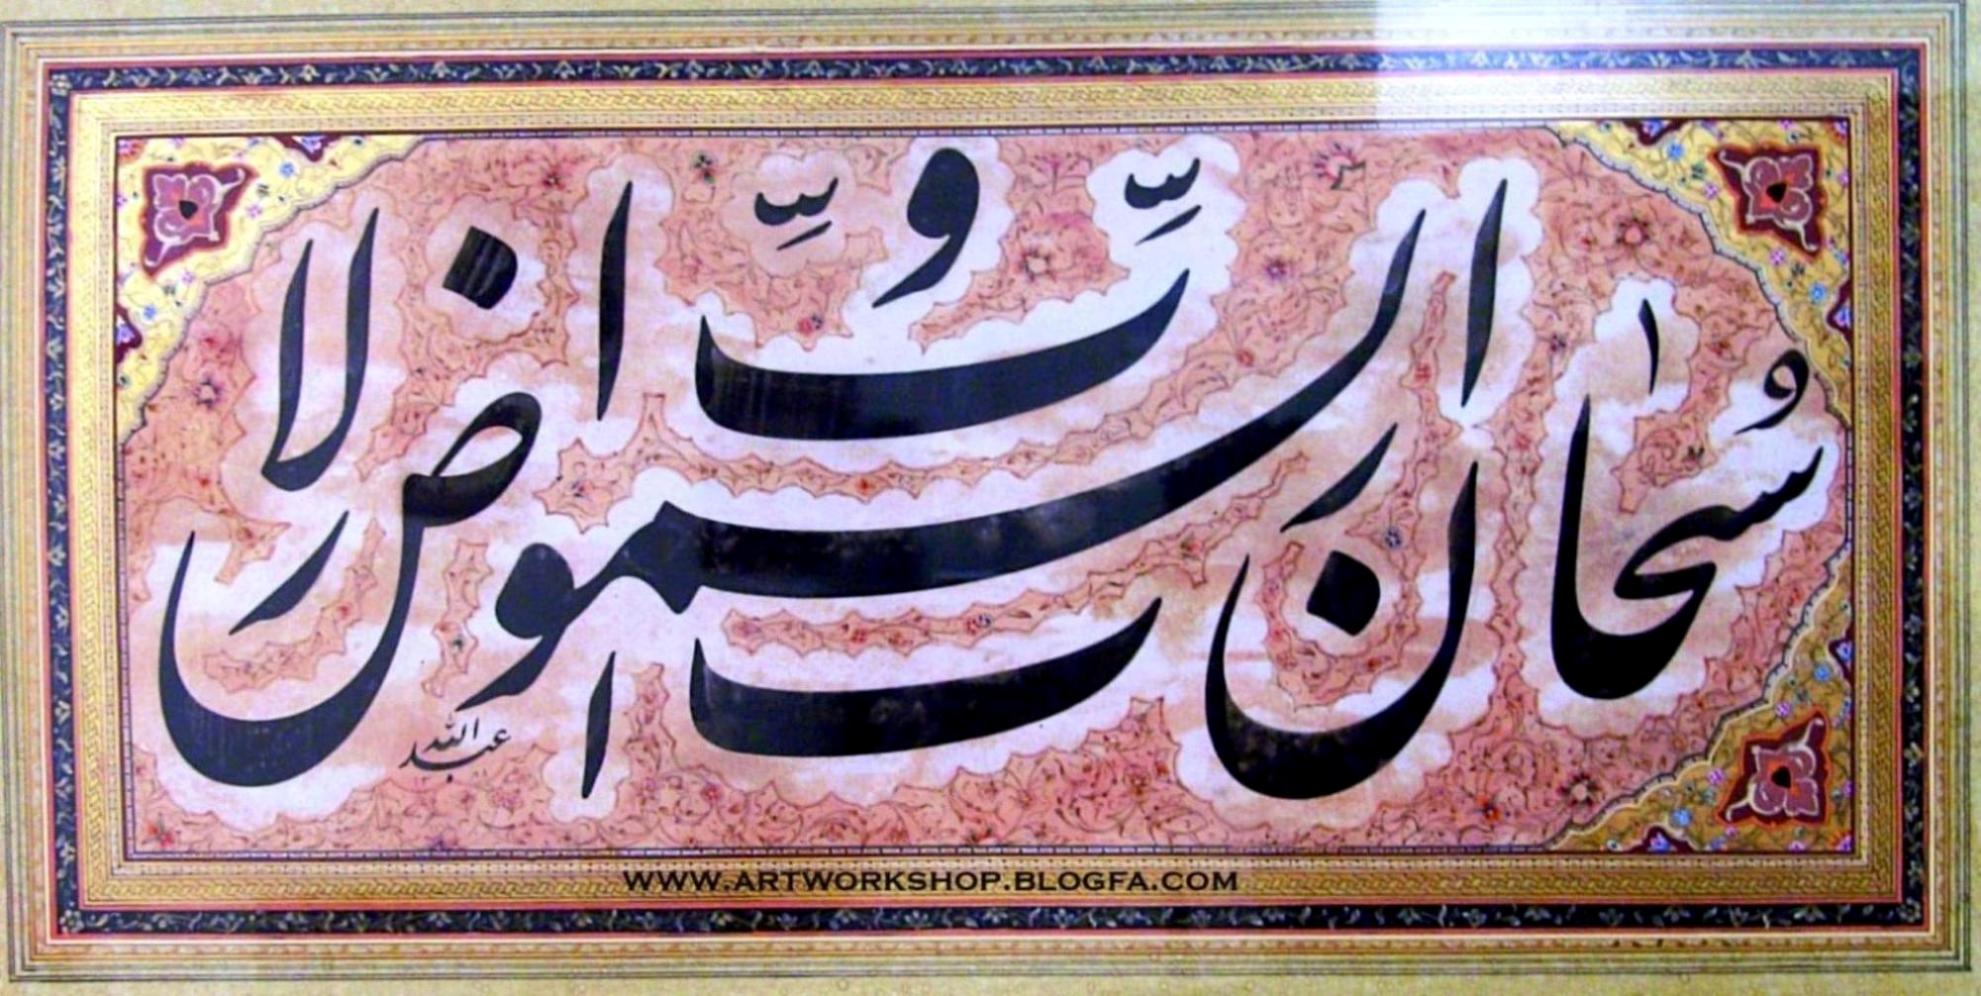 سُبحان رَبِّ السموات و الارض
عبدالله
WWW.ARTWORKSHOP.BLOGFA.COM